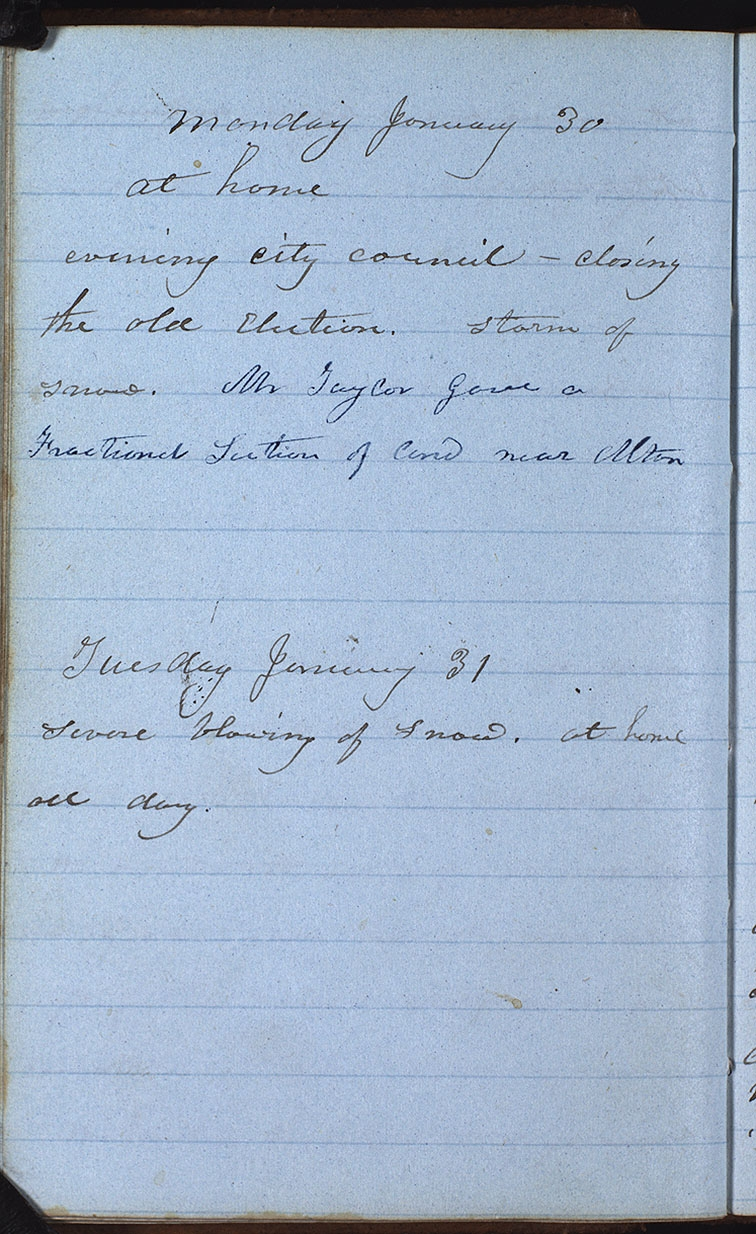 Monday January 30
at home
evening city council - closing
the old Election. storm of
snow. Mr Taylor Gave a
Fractional Section of land near Alton
Tuesday January 31
severe blowing of snow. at home
all day.